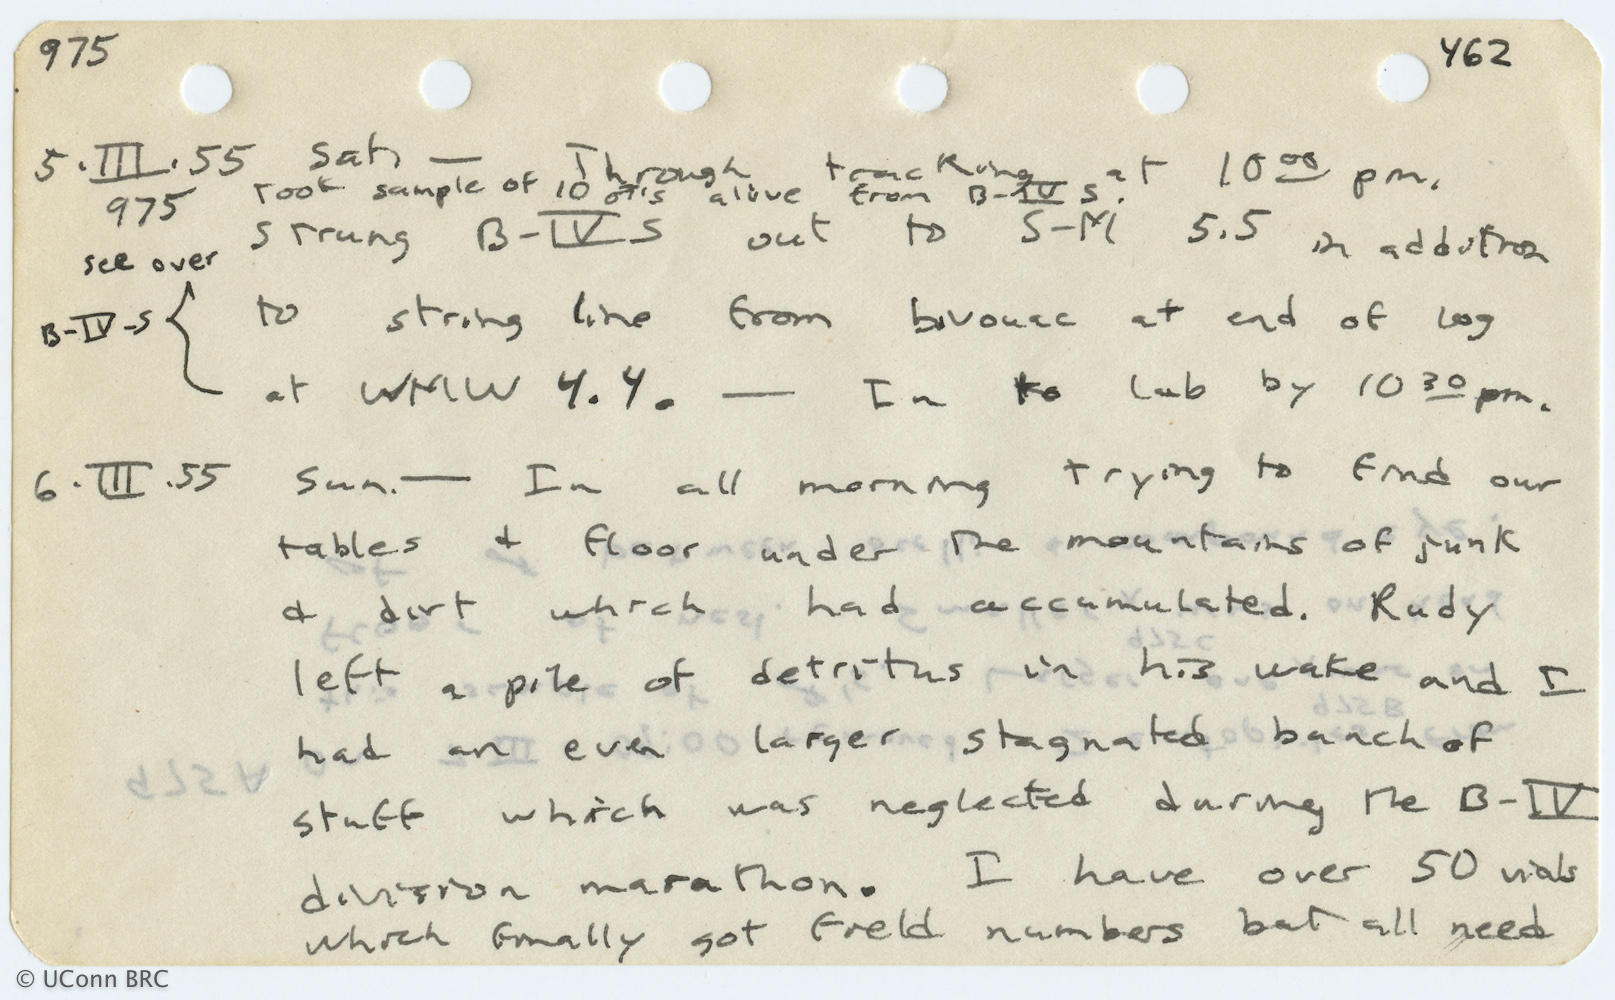 975 462
5·III·55 Sat. — Through tracking at 10 00 pm.
975 Took sample of 10 alive from B-IV S.
Strung B-IV S out to S-M 5.5 in addition
see over
B-IV-S to string line from bivouac at end of log
at WMW 4.4. — In to lab by 10 30 pm.
6·III·55 Sun. — In all morning trying to find our
tables & floor under the mountains of junk
& dirt which had accumulated. Rudy
left a pile of detritus in his wake and I
had an even larger stagnated bunch of
stuff which was neglected during the B-IV
division marathon. I have over 50 vials
which finally got field numbers but all need
© UConn BRC